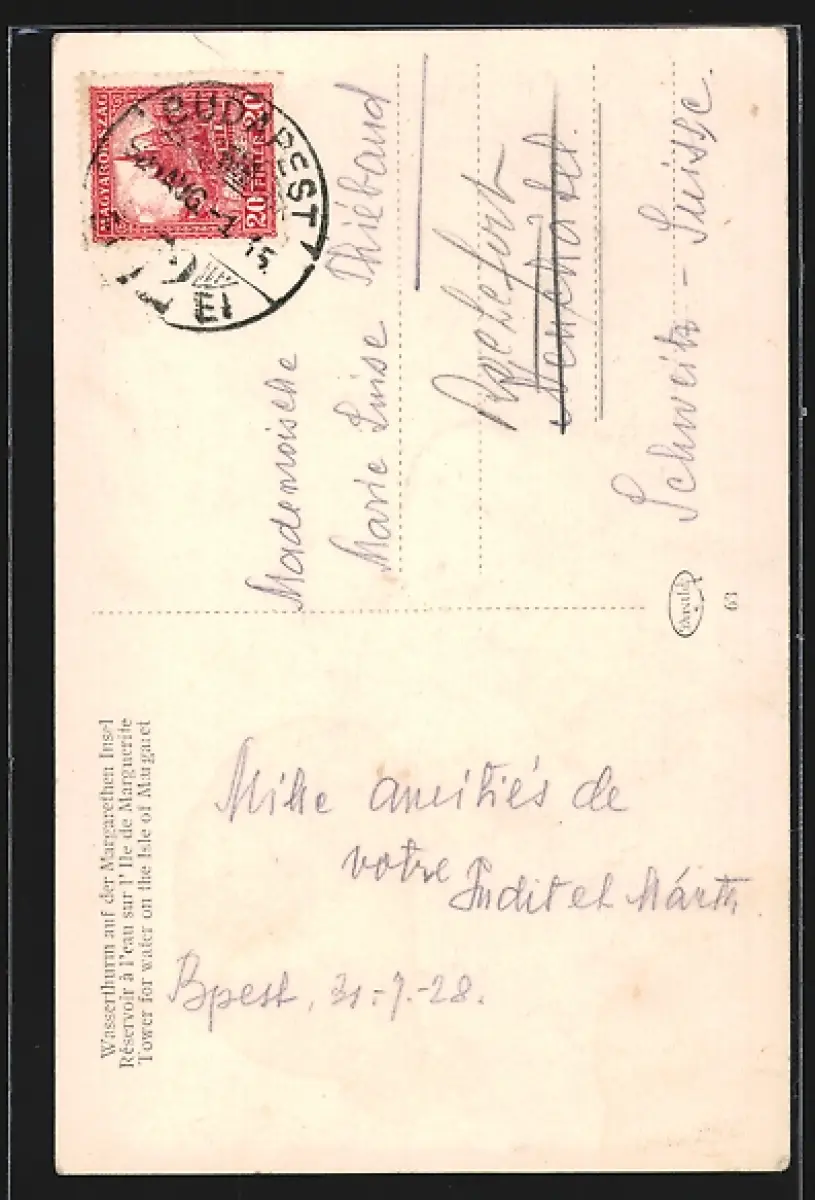 MAGYARORSZÁG
20 FILLÉR 20
BUDAPEST
AUG
15
Mademoiselle
Marie Luise Thiébaud
Rochefort
Neuchâtel.
Schweitz - Suisse.
63
Wasserthurm auf der Margarethen Insel
Réservoir à l'eau sur l' Ile de Marguerite
Tower for water on the Isle of Margaret
Mille amitiés de
votre Judit et Márta
Bpest, 31.-7.-28.